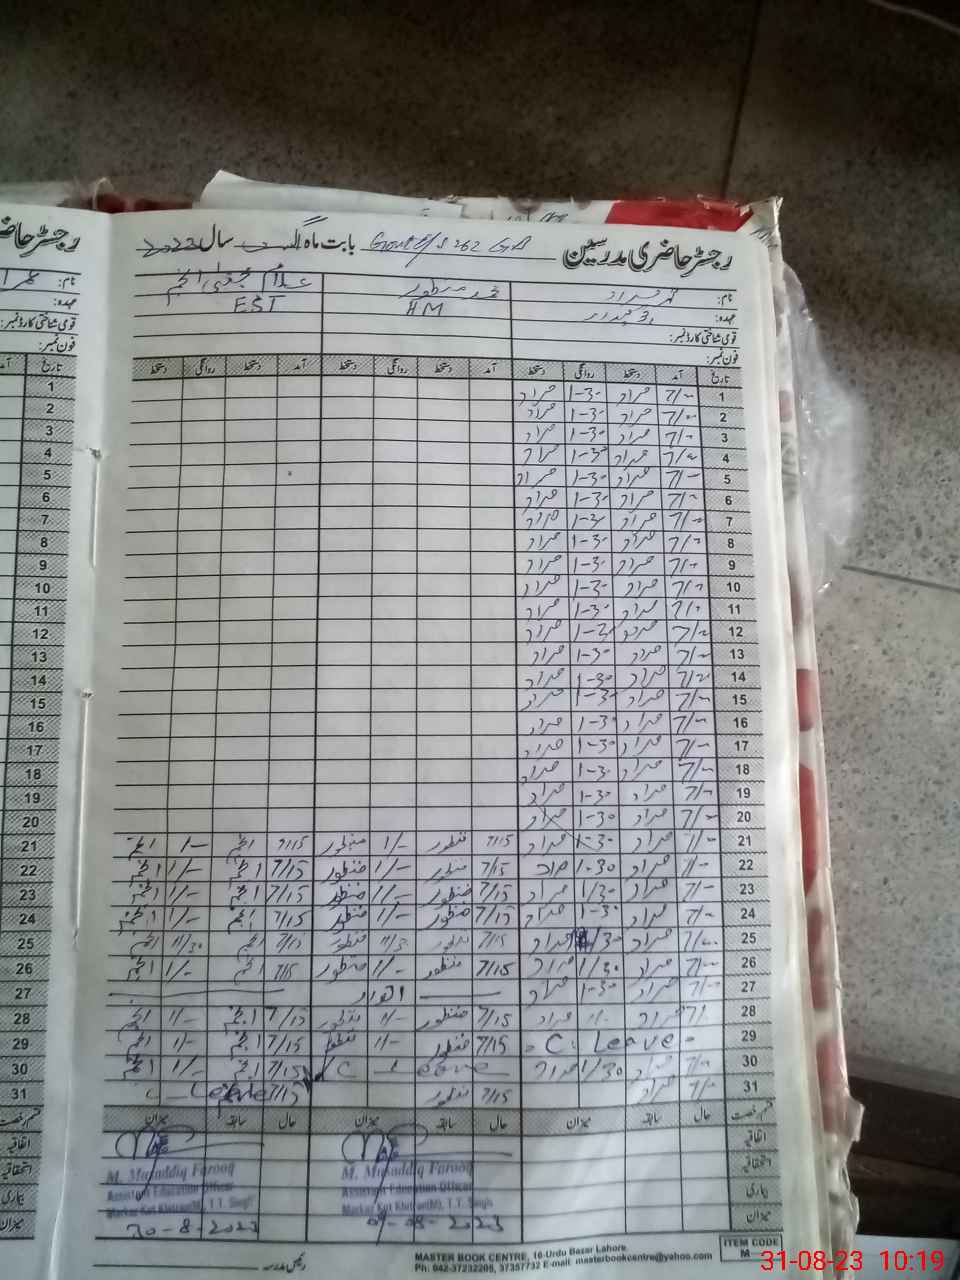 رجسٹر حاضری مدرسین Govt E/S 262 GB بابت ماہ اگست سال 2023
نام:
عہدہ: HM EST
قومی شناختی کارڈ نمبر:
فون نمبر:
تاریخ آمد دستخط روانگی دستخط آمد دستخط روانگی دستخط آمد دستخط روانگی دستخط
1 7/- مراد 1-30 مراد
2 7/- مراد 1-30 مراد
3 7/- مراد 1-30 مراد
4 7/- مراد 1-30 مراد
5 7/- مراد 1-30 مراد
6 7/- مراد 1-30 مراد
7 7/- مراد 1-30 مراد
8 7/- مراد 1-30 مراد
9 7/- مراد 1-30 مراد
10 7/- مراد 1-30 مراد
11 7/- مراد 1-30 مراد
12 7/- مراد 1-30 مراد
13 7/- مراد 1-30 مراد
14 7/- مراد 1-30 مراد
15 7/- مراد 1-30 مراد
16 7/- مراد 1-30 مراد
17 7/- مراد 1-30 مراد
18 7/- مراد 1-30 مراد
19 7/- مراد 1-30 مراد
20 7/- مراد 1-30 مراد
21 7/- مراد 1-30 مراد 7/15 منظور 1/- منظور 7/15 انجم 1/- انجم
22 7/- مراد 1-30 مراد 7/15 منظور 1/- منظور 7/15 انجم 1/- انجم
23 7/- مراد 1/30 مراد 7/15 منظور 1/- منظور 7/15 انجم 1/- انجم
24 7/- مراد 1-30 مراد 7/15 منظور 1/- منظور 7/15 انجم 1/- انجم
25 7/- مراد /30 مراد 7/15 منظور 11/30 منظور 7/15 انجم 11/30 انجم
26 7/- مراد 1/30 مراد 7/15 منظور 1/- منظور 7/15 انجم 1/- انجم
27 7/- مراد 1-30 مراد اتوار
28 7/- مراد 1/- مراد 7/15 منظور 1/- منظور 7/15 انجم 1/- انجم
29 C. Leave 7/15 منظور 1/- منظور 7/15 انجم 1/- انجم
30 7/- مراد 1/30 مراد C - Leave 7/15 انجم 1/- انجم
31 7/- مراد 7/15 منظور 7/15 C - Leave
قسم رخصت حال سابقہ میزان حال سابقہ میزان حال سابقہ میزان
اتفاقیہ
استحقاقیہ
بیماری
میزان
M. Musaddiq Farooq
Assistant Education Officer
Markaz Kot Khitran(M), T.T. Singh
30-8-2023
M. Musaddiq Farooq
Assistant Education Officer
Markaz Kot Khitran(M), T.T. Singh
09-08-2023
رئیس مدرسہ
MASTER BOOK CENTRE, 16-Urdu Bazar Lahore.
Ph: 042-37232205, 37357732 E-mail: masterbookcentre@yahoo.com
ITEM CODE
M-
رجسٹر حاضر
نام:
عہدہ:
قومی شناختی کارڈ نمبر:
فون نمبر:
تاریخ آمد
1
2
3
4
5
6
7
8
9
10
11
12
13
14
15
16
17
18
19
20
21
22
23
24
25
26
27
28
29
30
31
قسم رخصت
اتفاقیہ
استحقاقیہ
بیماری
میزان
31-08-23 10:19